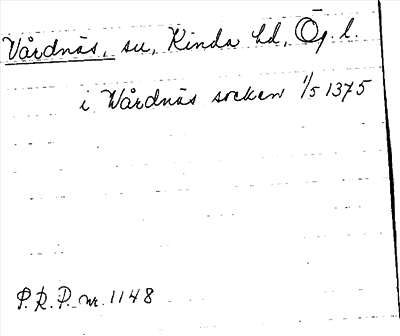 Vårdnäs, su, Kinda hd, Ög. l.
i Wårdnäs socken 1/5 1375
P.R.P. nr. 1148